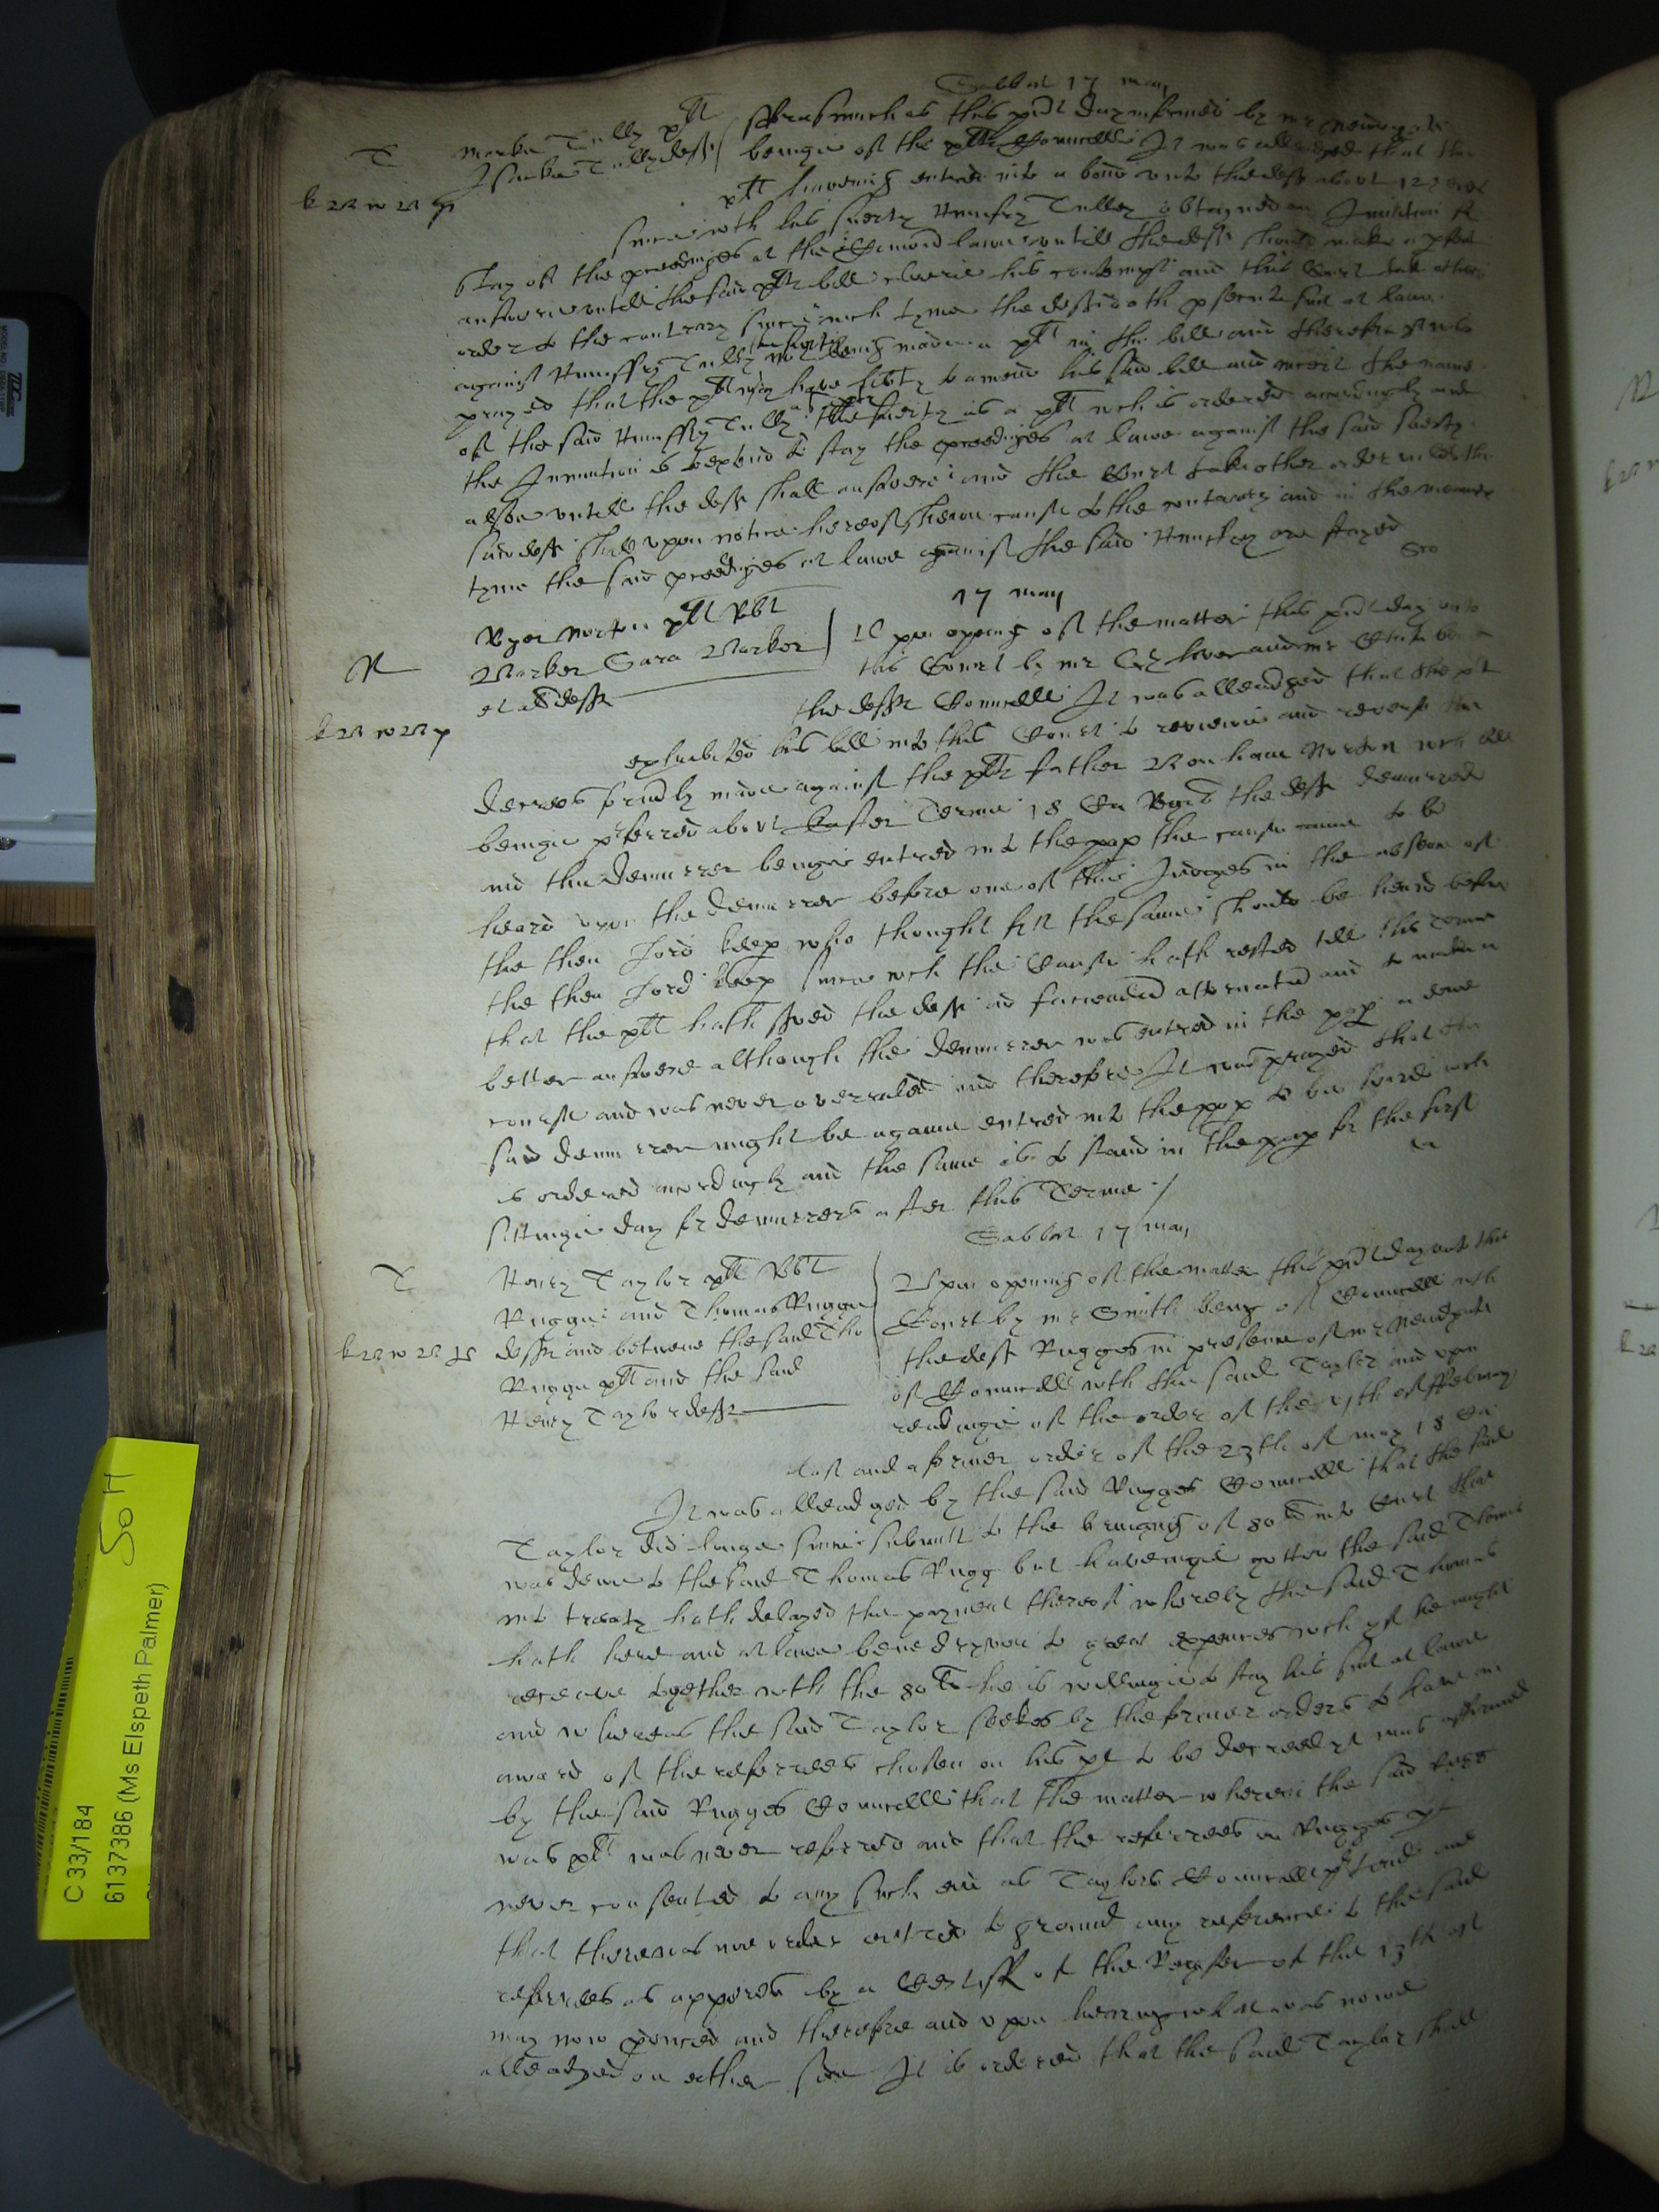 Sabbti 17 may
T
Marke Tully plt
Isacke Tully deft
Forasmuch as this pnt day informed by mr Newdigate
beinge of the plts Councell It was alleadged that the
plt haveing entred into a bond unto the deft about 12 yeres
since with his suerty Humfry Tulley obteyned an Iniunction for
stay of the proceedinges at the Comon lawe untill the deft should make a pfect
answere untill the said plts bill cleere his contempt and this Court take other
order to the contrary since which tyme the deft doth psecute suit at lawe
against Humffry Tulley the suertie not being made a plt in the bill and therefore it was
prayed that the plt may have libty to amend his said bill and insert the name
of the said Humffry Tully the suerty as a plt wch is ordered accordingly and
the Iniunction is to extend to stay the proceedinges at lawe against the said suerty
alsoe untill the deft shall answere and the Court take other order unles the
said deft shall upon notice hereof shewe cause to the contrary and in the meane
tyme the said proceedinges at lawe against the said Humfry are stayed
17 may
R
Norton plt Rbt
Barker Sara Barker
et al defts
Upon opening of the matter this pnt day unto
this Court by mr and mr
the defts Councell It was alleadged that the plt
exhibited his bill into this Court to reveiwe and reverse the
decrees formly made against the plts father Bonham Norton wch bill
beinge pferred about Easter Terme 18 Car Rgis the defts demurred
and the demurrer beinge entred into the pap the cause came to be
heard upon the demurrer before one of the Judges in the absence of
the then Lord keep who thought fitt the same should be heard before
the then Lord keep since wch the Cause hath rested till this Terme
that the plt hath served the deft ad faciend attornatu and to make a
better answere although the demurrer was entred in the pap in due
course and was never overruled and therefore It was prayed that the
said demurrer might be againe entred into the pap to be heard wch
is ordered accordingly and the same is to stand in the pap for the first
sittinge day for demurrers after this Terme
Sabbti 17 may
T
Henry Taylor plt Rbt
Rugge and Thomas Rugge
defts and betweene the said Tho
Rugge plt and the said
Henry Taylor deft
Upon opening of the matter this pnt day unto this
Court by mr Smith being of Councell with
the deft Rugges in presence of mr Newdigate
of Councell with the said Taylor and upon
readinge of the order of the th of ffebruary
last and a former order of the 23th of may 18 Car
It was alleadged by the said Rugges Councell that the said
Taylor did longe since submitt to the bringing of 80li into Court that
was dewe to the said Thomas Rugg but haveinge gotten the said Thomas
into treaty hath delayed the payment thereof whereby the said Thomas
hath here and at lawe bene dryven to great expences wch yf he might
receave together with the 80li he is willinge to stay his suit at lawe
and whereas the said Taylor seekes by the former orders to have an
award of the referrees chosen on his pt to be decreed yt was affirmed
by the said Rugges Councell that the matter wherein the said Rugg
was plt was never referred and that the referrees on Rugges pt
never consented to any such end as Taylors Councell ptend and
that there was noe order entred to ground any reference to the said
referrees as apperes by a Certiff of the Register of the 13th of
may now pduced and therefore and upon hearing what was nowe
alleadged on either side It is ordered that the said Taylor shall
C 33/184
6137386 (Ms Elspeth Palmer)